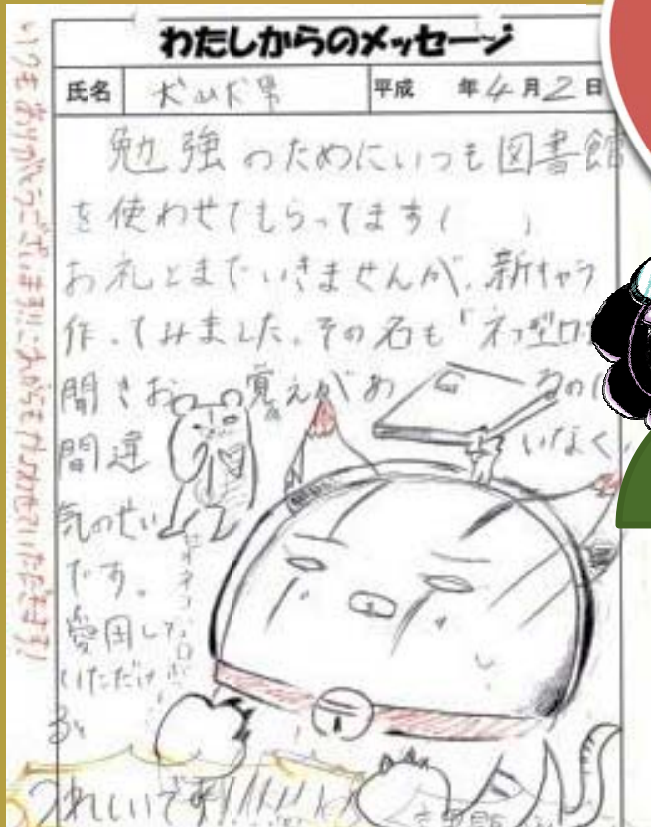 わたしからのメッセージ
氏名
平成 年4月2日
勉強のためにいつも図書館
を使わせてもらってます( )
お礼とまでいきませんが、新キャラ
作ってみました。その名も「ネコ型ロ
聞きお覚えがあるの
間違いなく
気のせい
です。
愛用して
いただけ
ると
うれしいです!!!!!!
いつもありがとうございます!!これからも